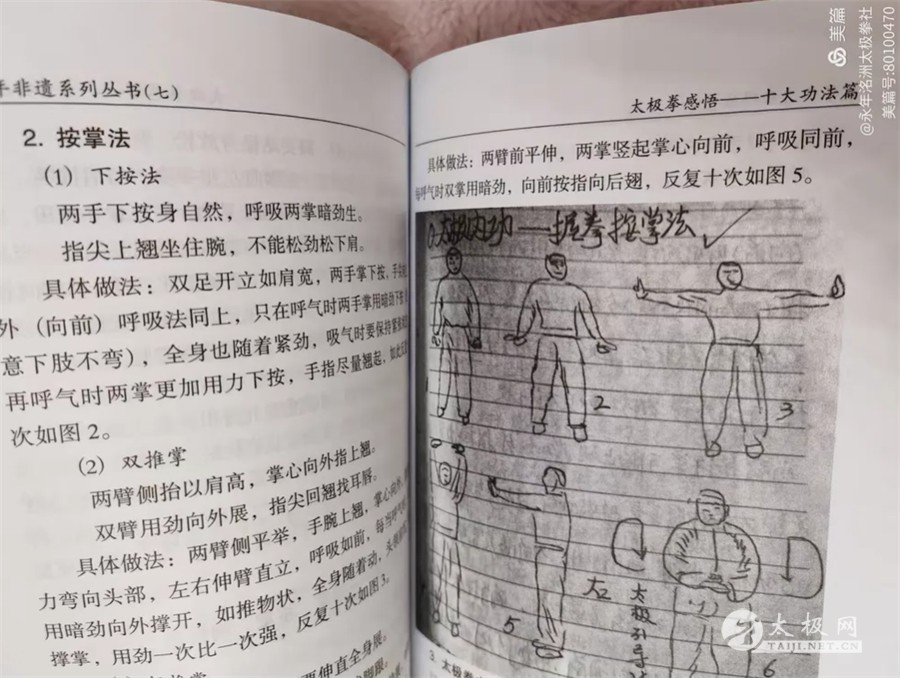 年非遗系列丛书(七)
2. 按掌法
(1) 下按法
两手下按身自然，呼吸两掌暗劲生。
指尖上翘坐住腕，不能松劲松下肩。
具体做法：双足开立如肩宽，两手掌下按，手
外（向前）呼吸法同上，只在呼气时两手掌用暗劲下按
意下肢不弯)，全身也随着紧劲，吸气时要保持
再呼气时两掌更加用力下按，手指尽量翘起，如此
次如图 2。
(2) 双推掌
两臂侧抬以肩高，掌心向外指上翘。
双臂用劲向外展，指尖回翘找耳唇。
具体做法：两臂侧平举，手腕上翘，掌心向外，
力弯向头部，左右伸臂直立，呼吸如前，每当呼气
用暗劲向外撑开，如推物状，全身随着动，头
撑掌，用劲一次比一次强，反复十次如图 3。
推掌
伸直全身展。
太极拳感悟——十大功法篇
具体做法：两臂前平伸，两掌竖起掌心向前，呼吸同前，
每呼气时双掌用暗劲，向前按指向后翘，反复十次如图 5。
太极内功—握拳按掌法
2
3
5
右
太极引
6
3. 太极拳
美篇
@永年洺洲太极拳社
美篇号:80100470
太极网
TAIJI.NET.CN